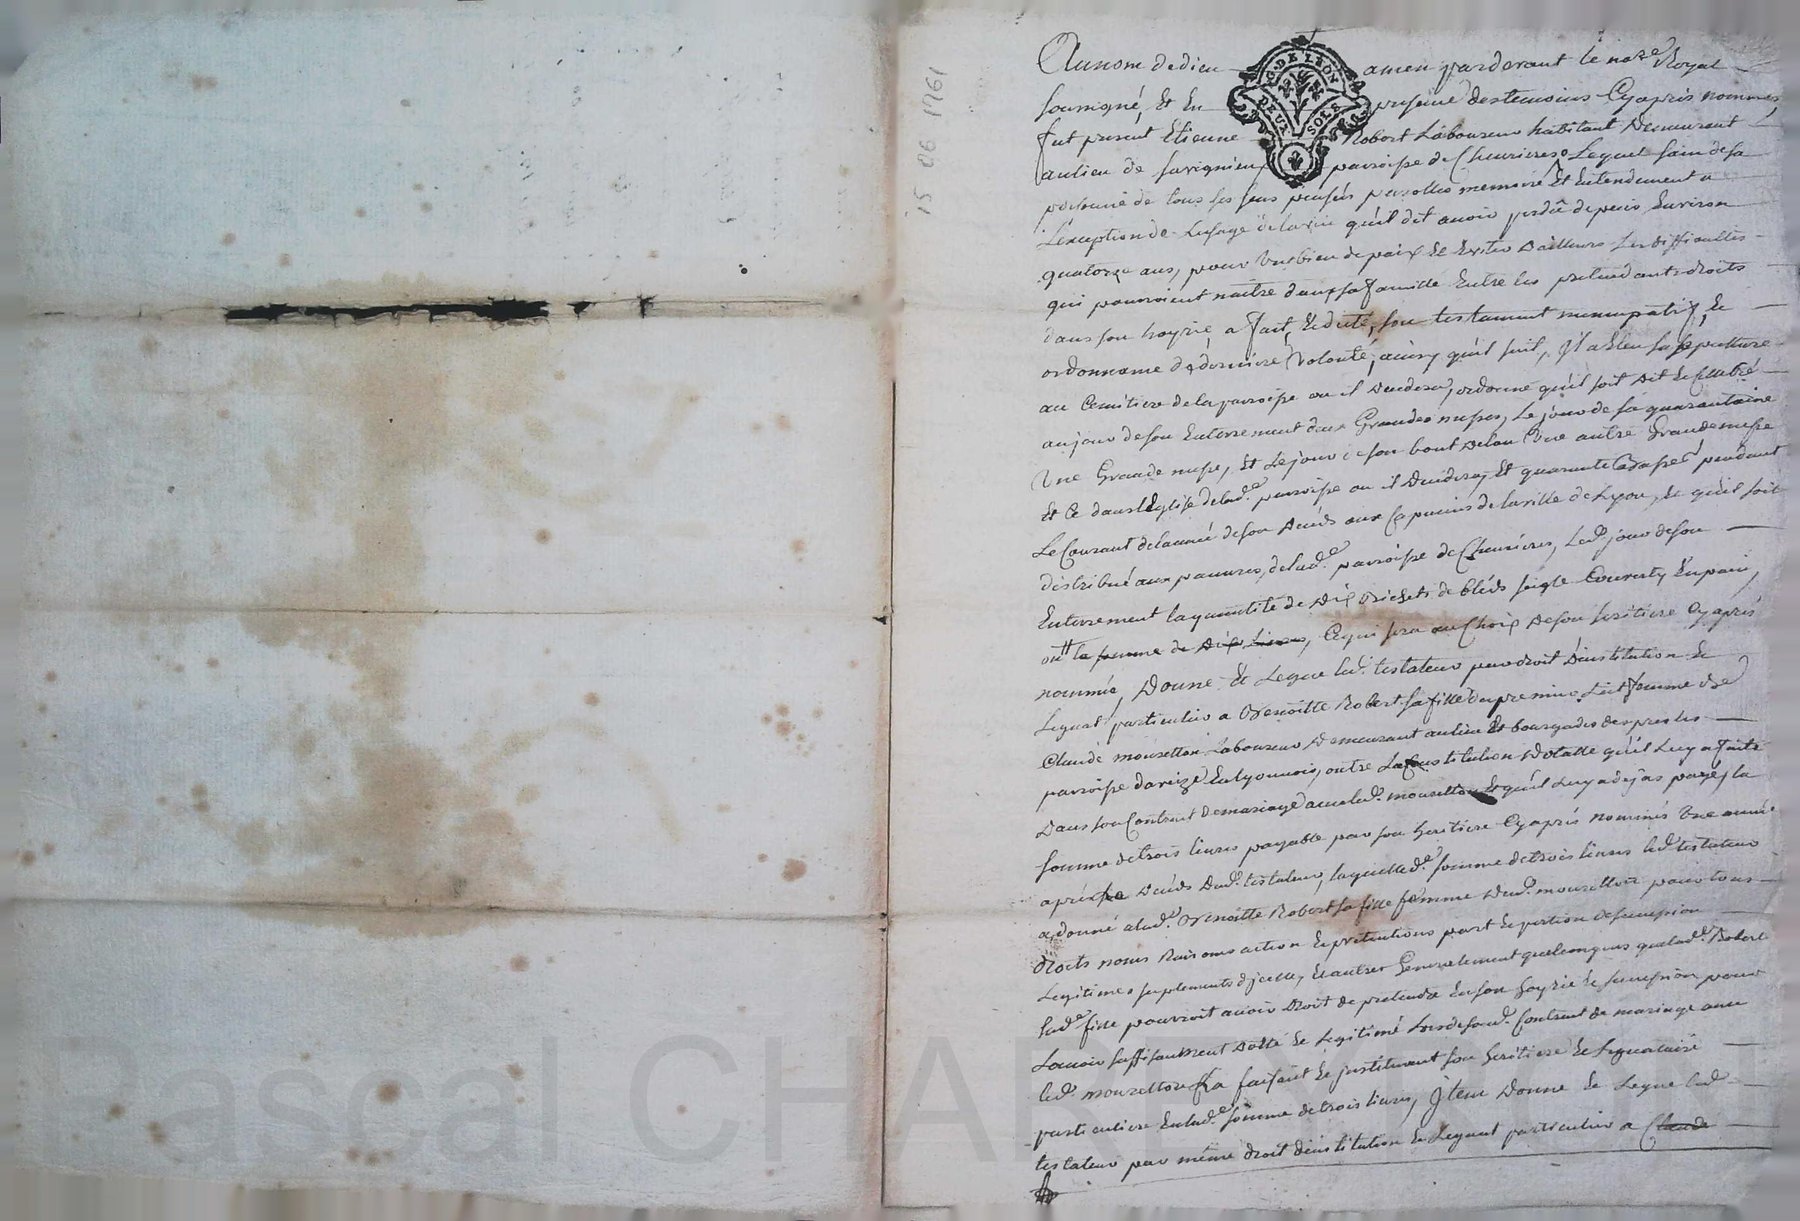 15 06 1761
G. DE LYON
DEUX SOLS
Au nom de dieu amen pardevant le no.re Royal
soussigné, Et En presence des temoins Cyaprés nommes,
fut present Etienne Robert Laboureur habitant Demeurant
au lieu de savignieu paroisse de Chevrieres, Lequel sain de sa
personne de tous ses sens pensés parolles memoire Et Entendement a
L'exception de L'usage de la vüe qu'il dit avoir perdüe depuis Environ
quatorze ans, pour Un bien de paix Et Eviter D'ailleurs Les difficultes
qui pourroient naitre dans sa famille Entre les pretendants droits
dans son hoyrie, a fait, Et dicté, son testament nuncupatif, Et
ordonnance de derniere Volonté, ainsy qu'il suit, Il a Eleu sa sepulture
au Cemitiere de la paroisse ou il Decedera, ordonne qu'il soit dit Et Celebré
au jour de son Enterrement deux Grandes messes, Le jour de sa quarantaine
Une Grande messe, Et Le jour de son bout de l'an Une autre Grande messe
Et Ce dans L'Eglise de lad.e paroisse ou il Decedera, Et quarante basses pendant
Le Courant de l'année de son decés aux Capucins de la ville de Lyon, Et qu'il soit
distribué aux pauvres, de lad.e paroisse de Chevrieres, Led. jour de son
Enterrement la quantité de Dix Bichets de bleds seigle Converty En pain,
ou la somme de Dix Livres, Ce qui sera au Choix de son heritiere Cy aprés
nommée, Donne Et Legue led. testateur par droit D'institution Et
Legat particulier a Benoitte Robert sa fille du premier Lit femme de
Claude mouretton Laboureur Demeurant au lieu Et bourgade des presles
paroisse d'aveize En Lyonnois, outre La Constitution Dotalle qu'il Luy a faite
Dans son Contrat de mariage avec led. mouretton Et qu'il Luy a dejas payé, la
somme de trois livres payable par son heritiere Cyaprés nommée Une année
aprés le Decés Dud. testateur, laquelle d.e somme de trois livres led. testateur
a donné a lad.e Benoitte Robert sa fille femme Dud. mouretton pour tous
droits noms Raisons action Et pretentions part Et portion de succession
Legitimes suplements d'jcelle, Et autres Generalement quelconques que lad.e Robert
sad.e fille pourroit avoir Droit de pretendre En son hoyrie Et succession pour
L'avoir suffisamment Dotté Et Legitimé Lors de son d. Contrat de mariage avec
led. mouretton La faisant Et jnstituant son heritiere Et Legataire
particuliere En lad.e somme de trois livres, Jtem Donne Et Legue led.
testateur par même droit d'institution Et Legat particulier a Claude